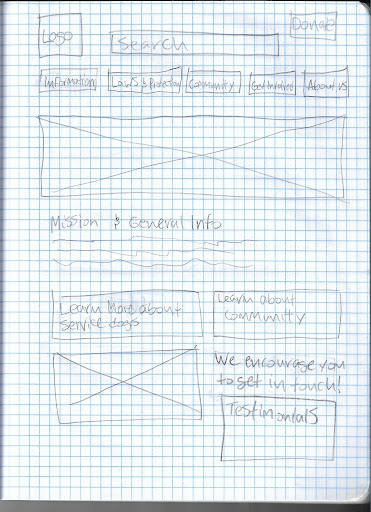 Logo
Search
Donate
Information
Laws & Protection
Community
Get Involved
About Us
Mission & General Info
Learn More about
service dogs
Learn about
Community
We encourage you
to get in touch!
Testimonials